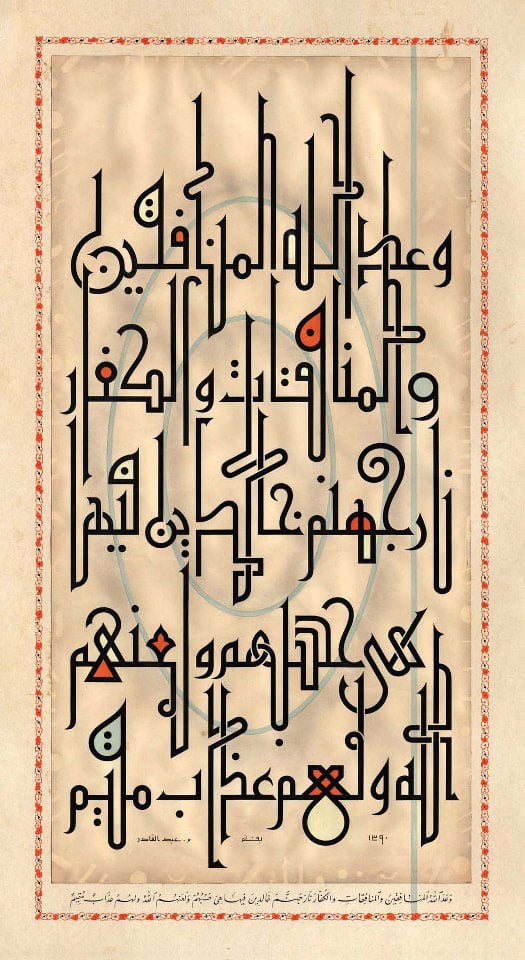 وعد الله المنافقين
والمنافقات والكفار
نار جهنم خالدين فيها
هي حسبهم ولعنهم
الله ولهم عذاب مقيم
١٣٩٠ بقلم م. عبد القادر
وَعَدَ اللهُ المُنَافِقِينَ وَالمُنَافِقَاتِ وَالكُفَّارَ نَارَ جَهَنَّمَ خَالِدِينَ فِيهَا هِيَ حَسْبُهُمْ وَلَعَنَهُمُ اللهُ وَلَهُمْ عَذَابٌ مُقِيمٌ